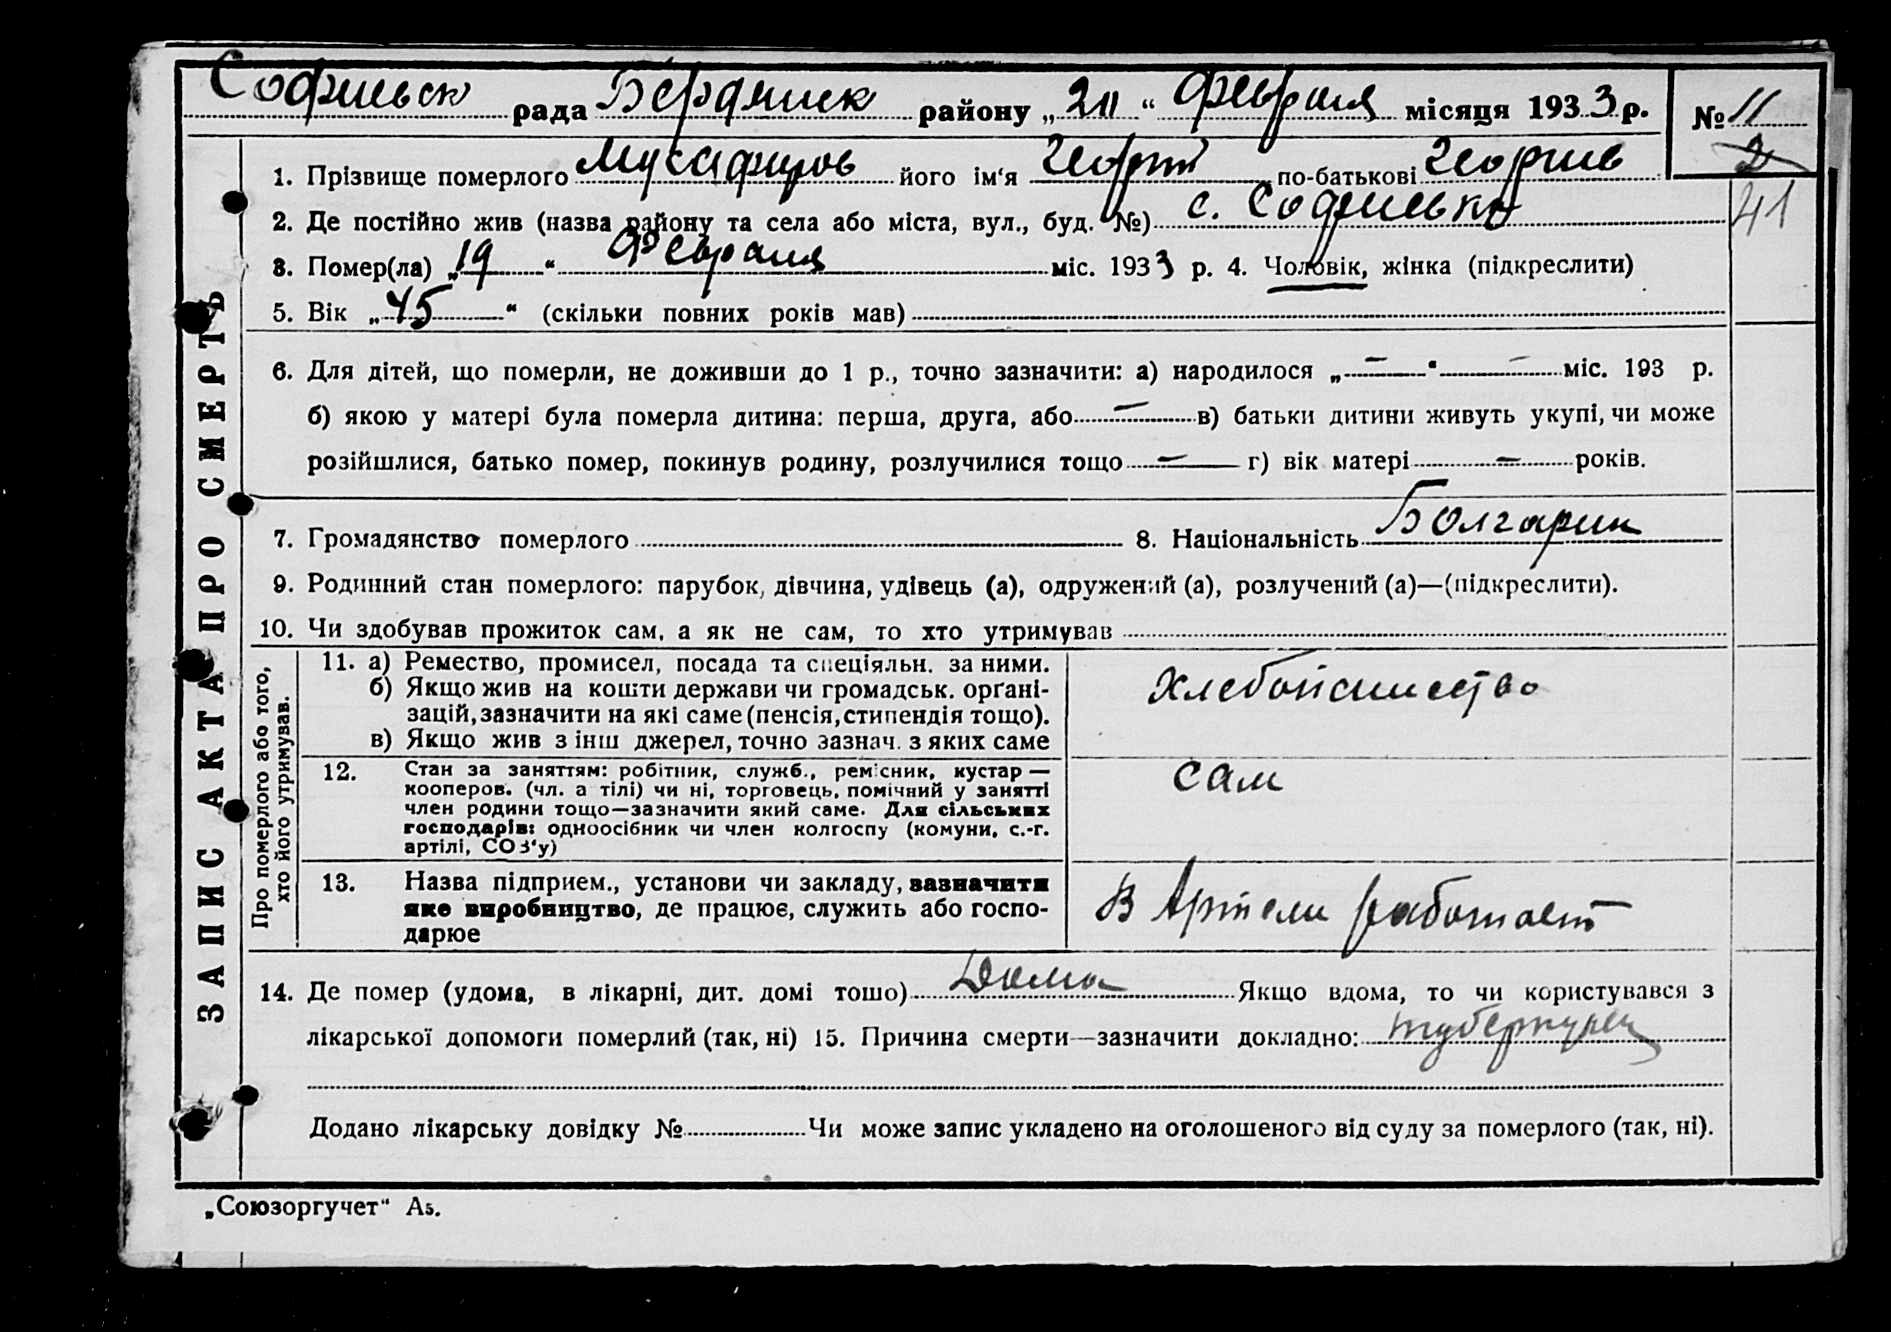 Софиевск рада Бердянск району „20“ Февраля місяця 1933 р. № 11
2
1. Прізвище померлого його ім‘я Георги по-батькові Георгиев
41
2. Де постійно жив (назва району та села або міста, вул., буд. №) с. Софиевка
3. Помер(ла) „19“ Февраля міс. 1933 р. 4. Чоловік, жінка (підкреслити)
5. Вік „45“ (скільки повних років мав)
6. Для дітей, що померли, не доживши до 1 р., точно зазначити: а) народилося „—“ — міс. 193 р.
б) якою у матері була померла дитина: перша, друга, або — в) батьки дитини живуть укупі, чи може
розійшлися, батько помер, покинув родину, розлучилися тощо — г) вік матері — років.
7. Громадянство померлого 8. Національність Болгарин
9. Родинний стан померлого: парубок, дівчина, удівець (а), одружений (а), розлучений (а)—(підкреслити).
10. Чи здобував прожиток сам, а як не сам, то хто утримував
ЗАПИС АКТА ПРО СМЕРТЬ
Про померлого або того,
хто його утримував.
11. а) Ремество, промисел, посада та спеціяльн. за ними.
б) Якщо жив на кошти держави чи громадськ. орґані-
зацій, зазначити на які саме (пенсія, стипендія тощо).
в) Якщо жив з інш джерел, точно зазнач. з яких саме
12. Стан за заняттям: робітник, служб., ремісник, кустар —
кооперов. (чл. а тілі) чи ні, торговець, помічний у занятті
член родини тощо—зазначити який саме. Для сільських
господарів: одноосібник чи член колгоспу (комуни, с.-г.
артілі, СОЗ‘у)
сам
13. Назва підприєм., установи чи закладу, зазначити
яке виробництво, де працює, служить або госпо-
дарює
В Артели работает
14. Де помер (удома, в лікарні, дит. домі тошо) Дома Якщо вдома, то чи користувався з
лікарської допомоги померлий (так, ні) 15. Причина смерти—зазначити докладно:
Додано лікарську довідку № Чи може запис укладено на оголошеного від суду за померлого (так, ні).
„Союзоргучет“ А5.